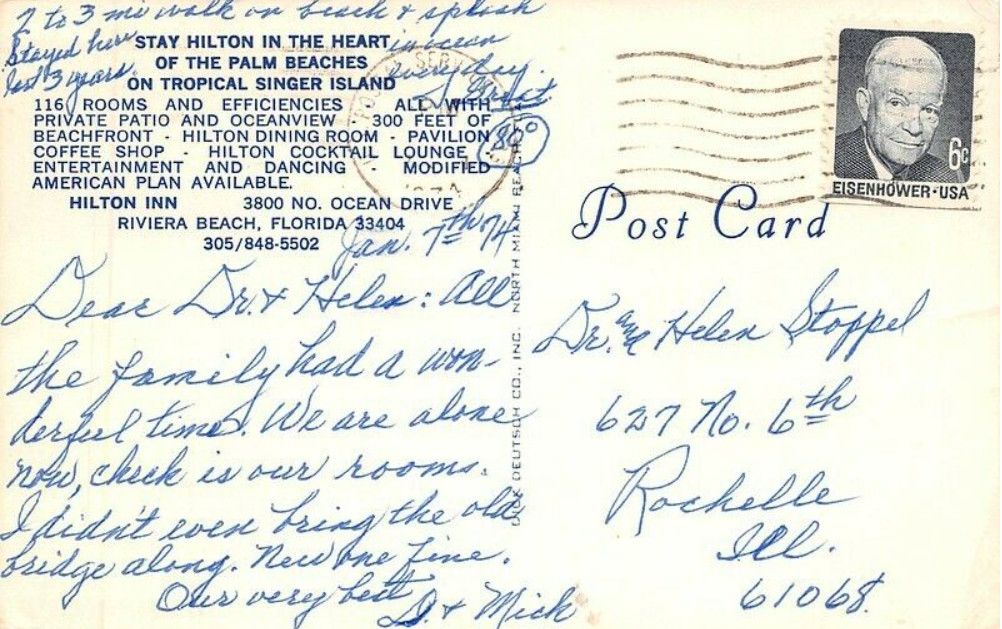 2 to 3 mi walk on beach & splash
in ocean
everyday.
Great
80°
Stayed here
last 3 years.
STAY HILTON IN THE HEART
OF THE PALM BEACHES
ON TROPICAL SINGER ISLAND
116 ROOMS AND EFFICIENCIES - ALL WITH
PRIVATE PATIO AND OCEANVIEW - 300 FEET OF
BEACHFRONT - HILTON DINING ROOM - PAVILION
COFFEE SHOP - HILTON COCKTAIL LOUNGE
ENTERTAINMENT AND DANCING - MODIFIED
AMERICAN PLAN AVAILABLE.
HILTON INN 3800 NO. OCEAN DRIVE
RIVIERA BEACH, FLORIDA 33404
305/848-5502
Jan. 7th 74
Dear Dr. & Helen: All
the family had a won-
derful time. We are alone
now, check is our rooms.
I didn't even bring the old
bridge along. New one fine.
Our very best
D. & Mick
DEUTSCH CO., INC. NORTH MIAMI BEACH
6c
EISENHOWER·USA
Post Card
Dr. and Helen Stoppel
627 No. 6th
Rochelle
Ill.
61068.